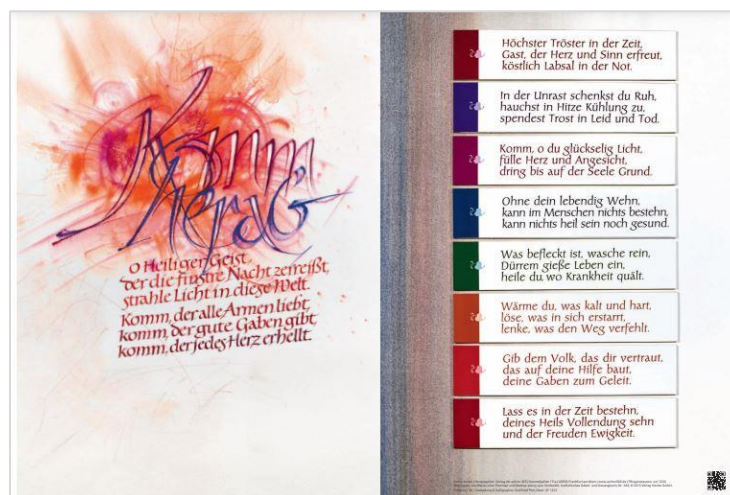 Komm herab
o Heiliger Geist,
der die finstre Nacht zerreißt,
strahle Licht in diese Welt.
Komm, der alle Armen liebt,
komm, der gute Gaben gibt,
komm, der jedes Herz erhellt.
Höchster Tröster in der Zeit,
Gast, der Herz und Sinn erfreut,
köstlich Labsal in der Not.
In der Unrast schenkst du Ruh,
hauchst in Hitze Kühlung zu,
spendest Trost in Leid und Tod.
Komm, o du glückselig Licht,
fülle Herz und Angesicht,
dring bis auf der Seele Grund.
Ohne dein lebendig Wehn,
kann im Menschen nichts bestehn,
kann nichts heil sein noch gesund.
Was befleckt ist, wasche rein,
Dürrem gieße Leben ein,
heile du, wo Krankheit quält.
Wärme du, was kalt und hart,
löse, was in sich erstarrt,
lenke, was den Weg verfehlt.
Gib dem Volk, das dir vertraut,
das auf deine Hilfe baut,
deine Gaben zum Geleit.
Lass es in der Zeit bestehn,
deines Heils Vollendung sehn
und der Freuden Ewigkeit.